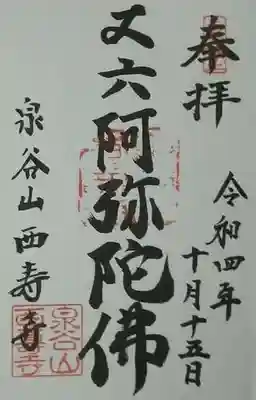 奉拝
令和四年
十月十五日
丈六阿弥陀佛
泉谷山西寿寺
泉谷山
西壽寺